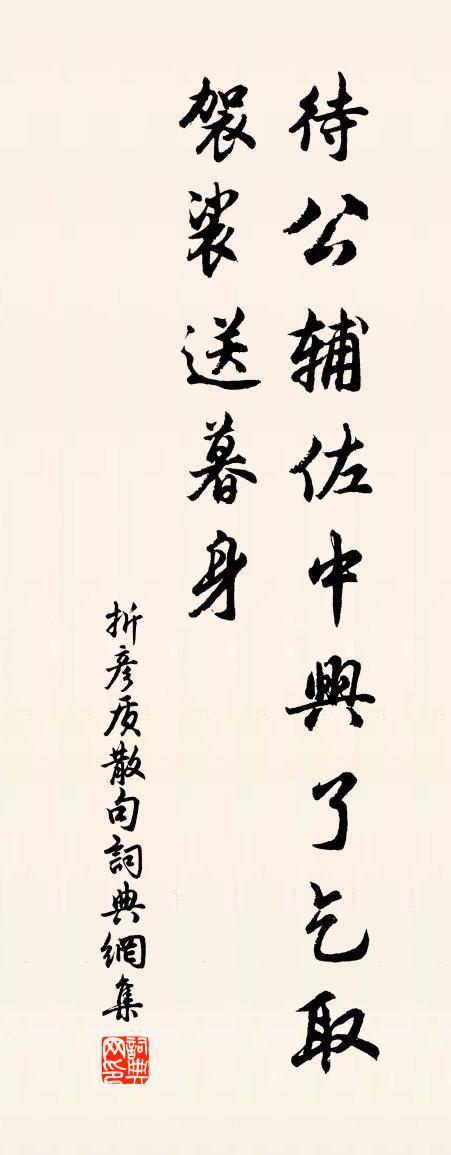 待公辅佐中興了乞取
袈裟送暮身
折彦质散句詞典網集
詞典网印